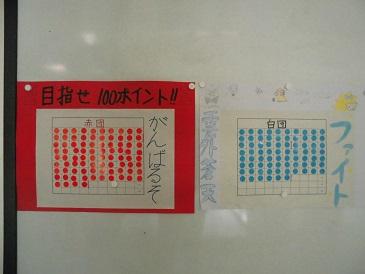 目指せ 100ポイント!!
赤団
がんばるぞ
雲外蒼天
白団
ファイト